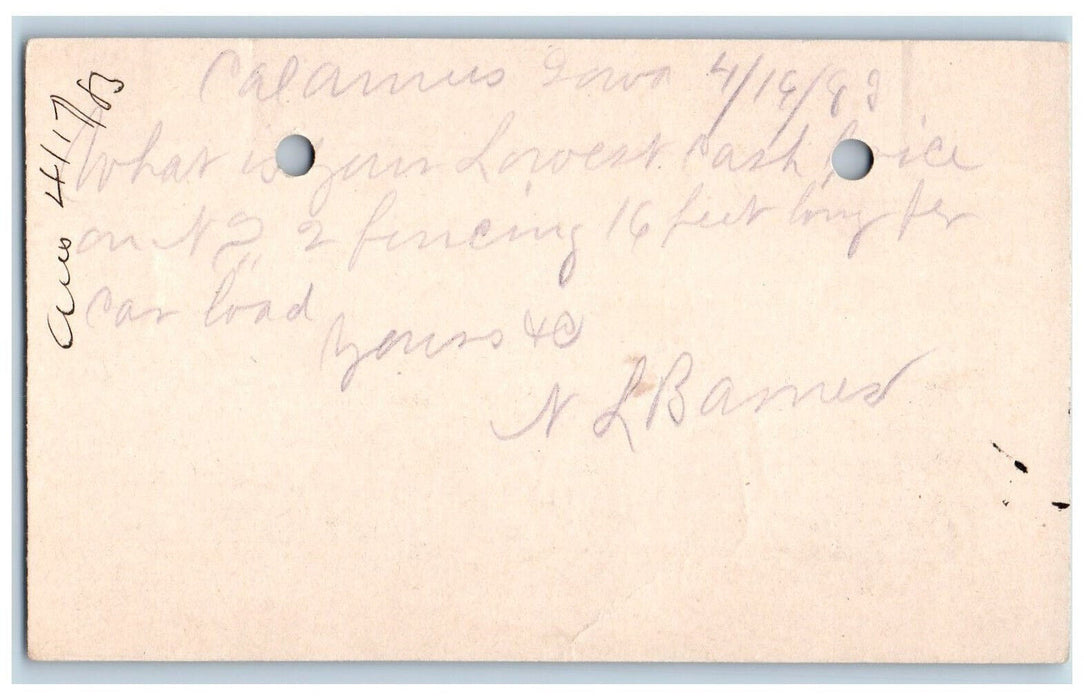 Calamus Iowa 4/16/93
What is your Lowest Cash Price
on No 2 fencing 16 feet long per
car load
Yours &C
N L Barnes
Ans 4/17/93